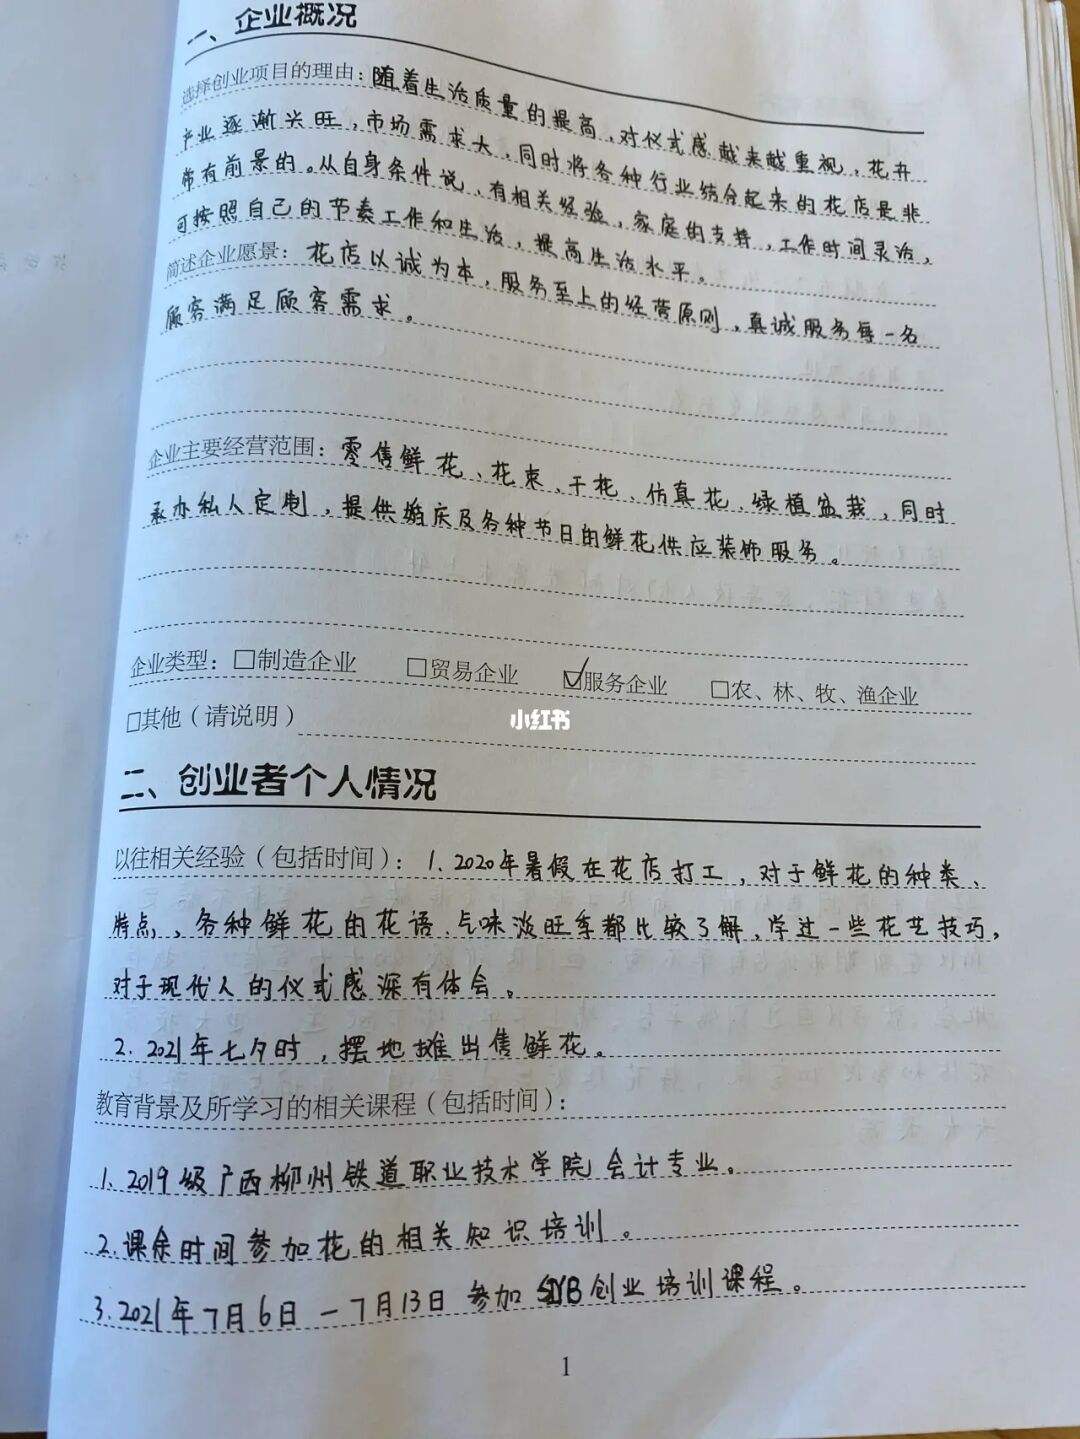 一、企业概况
选择创业项目的理由：随着生活质量的提高，对仪式感越来越重视，花卉
产业逐渐兴旺，市场需求大，同时将各种行业结合起来的花店是非
常有前景的。从自身条件说，有相关经验，家庭的支持，工作时间灵活，
可按照自己的节奏工作和生活，提高生活水平。
简述企业愿景：花店以诚为本，服务至上的经营原则，真诚服务每一名
顾客满足顾客需求。
企业主要经营范围：零售鲜花、花束、干花、仿真花、绿植盆栽，同时
承办私人定制，提供婚庆及各种节日的鲜花供应装饰服务。
企业类型：□制造企业 □贸易企业 ☑服务企业 □农、林、牧、渔企业
□其他（请说明）
小红书
二、创业者个人情况
以往相关经验（包括时间）：1. 2020年暑假在花店打工，对于鲜花的种类、
特点、各种鲜花的花语、气味淡旺季都比较了解，学过一些花艺技巧，
对于现代人的仪式感深有体会。
2. 2021年七夕时，摆地摊出售鲜花。
教育背景及所学习的相关课程（包括时间）：
1. 2019级广西柳州铁道职业技术学院会计专业。
2. 课余时间参加花的相关知识培训。
3. 2021年7月6日—7月13日 参加SYB创业培训课程。
1